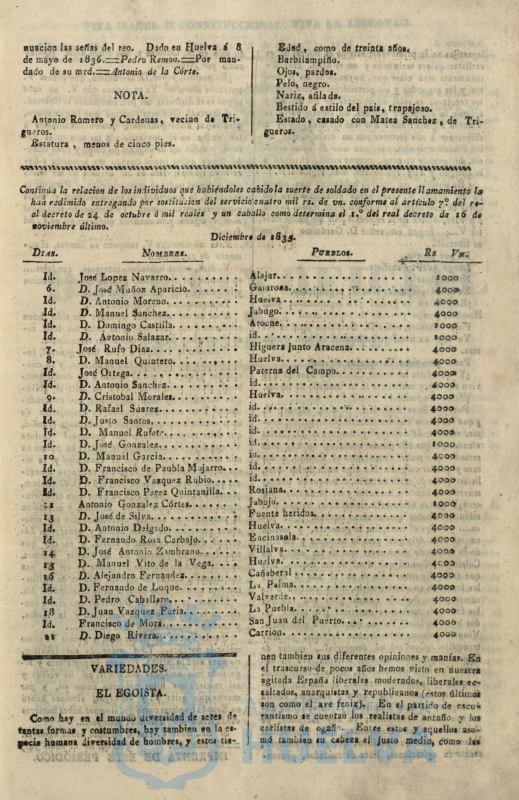 nuacion las señas del reo. Dado en Huelva á 8
de mayo de 1836.=Pedro Remon.=Por man-
dado de su mrd.=Antonio de la Córte.
NOTA.
Antonio Romero y Cardenas, vecino de Tri-
gueros.
Estatura, menos de cinco pies.
Edad, como de treinta años.
Barbilampiño.
Ojos, pardos.
Pelo, negro.
Nariz, afilada.
Bestido á estilo del pais, trapajoso.
Estado, casado con Matea Sanchez, de Tri-
gueros.
Continúa la relacion de los individuos que habiéndoles cabido la suerte de soldado en el presente llamamiento la
han redimido entregando por sostitucion del servicio cuatro mil rs. de vn. conforme al artículo 7º. del re-
al decreto de 24 de octubre ó mil reales y un caballo como determina el 1.º del real decreto de 16 de
noviembre último.
Diciembre de 1835.
DIAS. NOMBRES. PUEBLOS. Rs VN.
Id. José Lopez Navarro. Alajar. 1000
6. D. José Muñoz Aparicio. Galarosa. 4000
Id. D. Antonio Moreno. Huelva. 4000
Id. D. Manuel Sanchez. Jabugo. 4000
Id. D. Domingo Castilla. Aroche. 1000
Id. D. Antonio Salazar. id. 1000
7. José Rufo Diaz. Higuera junto Aracena. 4000
8. D. Manuel Quintero. Huelva. 4000
Id. José Ortega. Paterna del Campo. 4000
Id. D. Antonio Sanchez. id. 4000
9. D. Cristobal Morales. Huelva. 4000
Id. D. Rafael Suarez. id. 4000
Id. D. Justo Santos. id. 4000
Id. D. Manuel Rufete. id. 4000
Id. D. José Gonzalez. id. 1000
10 D. Manuel Garcia. id. 4000
Id. D. Francisco de Paubla Mojarro. id. 4000
Id. D. Francisco Vazquez Rubio. id. 4000
Id. D. Francisco Perez Quintanilla. Rosiana. 4000
11 Antonio Gonzalez Córtes. Jabujo. 1000
13 D. José de Silva. Fuente heridos. 4000
Id. D. Antonio Delgado. Huelva. 4000
Id. D. Fernando Rosa Carbajo. Encinasola. 4000
14 D. José Antonio Zambrano. Villalva. 4000
15 D. Manuel Vito de la Vega. Huelva. 4000
16 D. Alejandro Fernandez. Cañaberal 4000
Id. D. Fernando de Luque. La Palma. 4000
Id. D. Pedro Caballero. Valverde. 4000
18 D. Juan Vazquez Feria. La Puebla. 4000
Id. Francisco de Mora. San Juan del Puerto. 4000
21 D. Diego Rivera. Carrion. 4000
VARIEDADES.
EL EGOISTA.
Como hay en el mundo diversidad de seres de
tantas formas y costumbres, hay tambien en la es-
pecie humana diversidad de hombres, y estos tie-
nen tambien sus diferentes opiniones y manías. En
el trascurso de pocos años hemos visto en nuestra
agitada España liberales moderados, liberales ec-
saltados, anarquistas y republicanos (estos últimos
son como el ave fenix). En el partido de oscu-
rantismo se cuentan los realistas de antaño, y los
carlistas de ogaño. Entre estos y aquellos aso-
mó tambien su cabeza el justo medio, como las